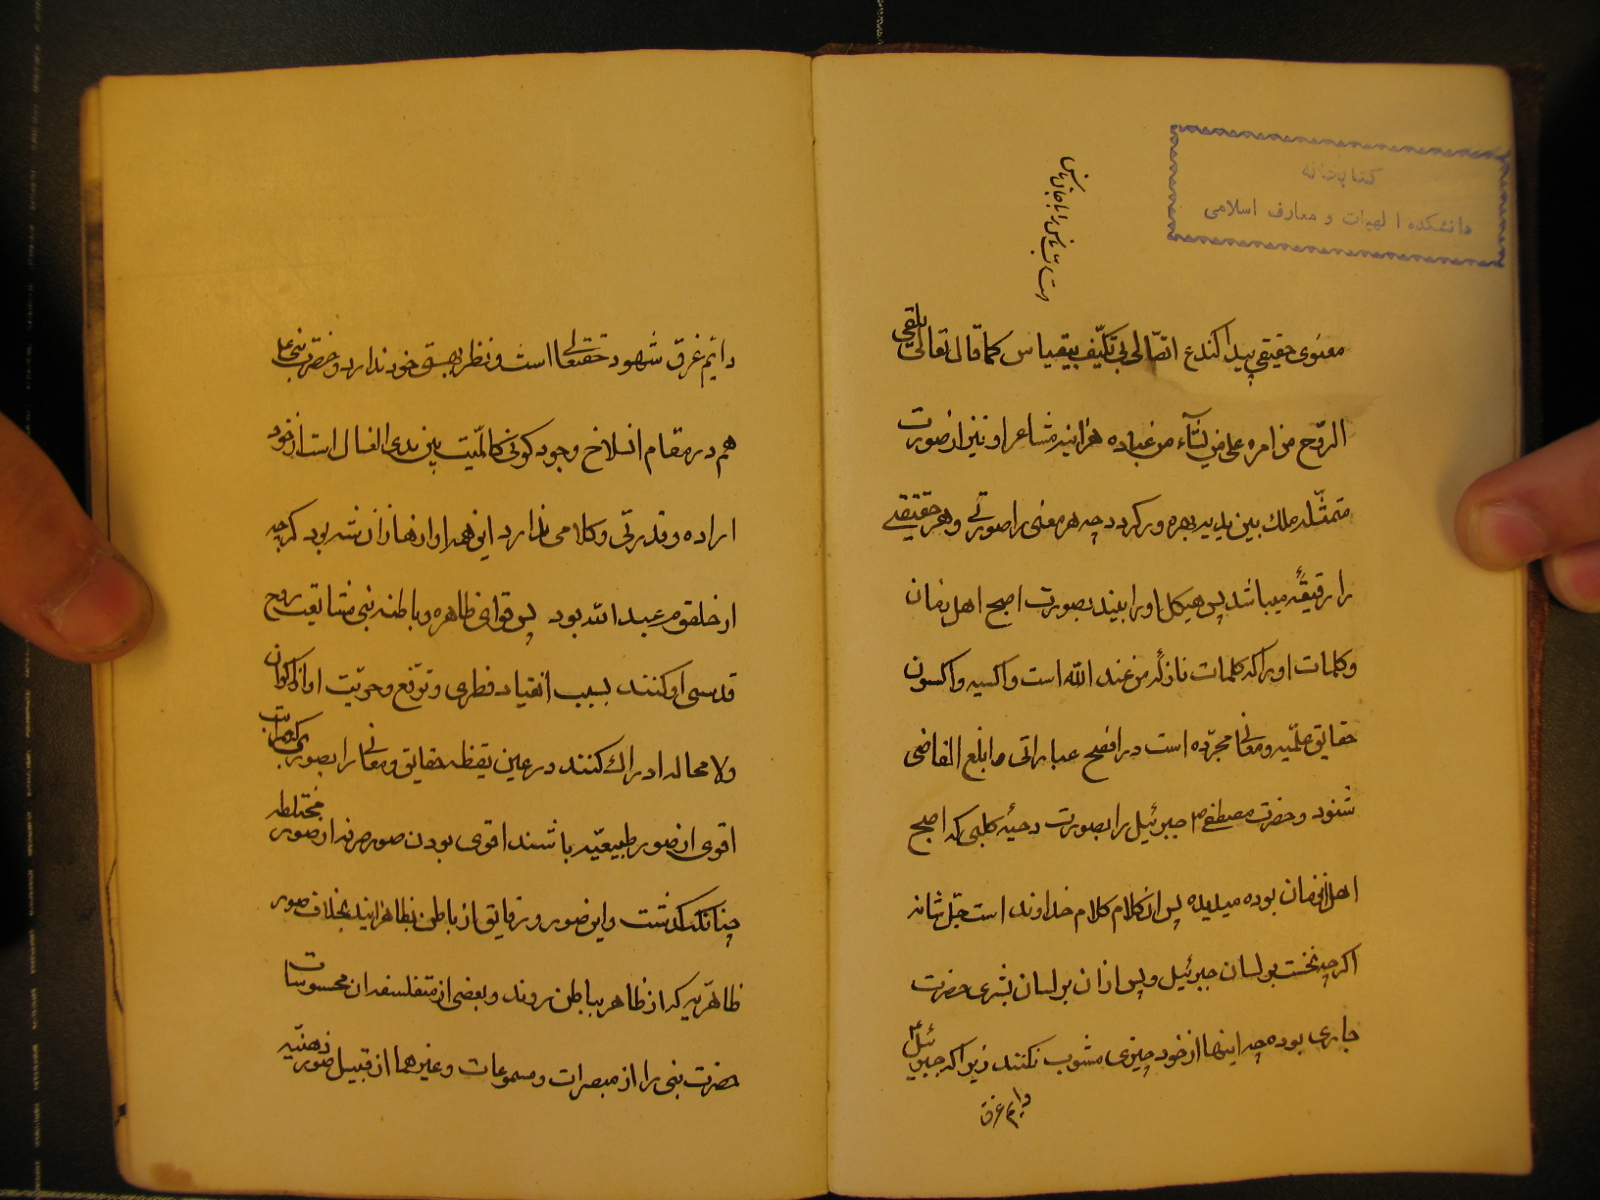 کتابخانه
دانشکده الهیات و معارف اسلامی
هست رب الناس را با جان ناس
معنوی حقیقی پیدا کند ع اتصالی بی تکیّف بیقیاس کما قال تعالی یلقی
الروح من امره علی من یشآء من عباده هر اینه مشاعر او نیز از صورت
متمثّلهٔ ملک بین یدیه بهره ور کردد چه هر معنی را صورتی و هر حقیقتی
را رقیقهٔ میباشد پس هیکل او را بیند بصورت اصبح اهل زمان
و کلمات او را که کلمات نازلهٔ من عند الله است و اکسیه و اکسون
حقایق علمیّه و معانی مجرّده است در افصح عباراتی و ابلغ الفاظی
شنود و حضرت مصطفی ص جبرئیل را بصورت دحیهٔ کلبی که اصبح
اهل آنزمان بوده میدیده پس آن کلام کلام خداوند است جلّ شانه
اکرچه نخست بر لسان جبرئیل و پس از آن بر لسان بشری حضرت
جاری بوده چه اینها از خود چیزی مشوب نکنند زیرا که جبرئیل
دایم غرق
دایم غرق شهود حقتعالی است و نظر بهستی خود ندارد و حضرت نبی
هم در مقام انسلاخ وجود کونی کالمیّت بین یدی الغسال است از خود
اراده و قدرتی و کلامی ندارد این همه اوازها از آن شه بود کرچه
از حلقوم عبد الله بود پس قوای ظاهره و باطنه نبی مشایعت روح
قدسی او کنند بسبب انقیاد فطری و ترفّع و حریّت او از اکوان
ولا محاله ادراک کنند در عین یقظه حقایق و معانی را بصوری که بمراتب
اقوی از صور طبیعیّه باشند اقوی بودن صور صرفه از صور مختلطه
چنانکه کذشت و این صور و رقایق از باطن بظاهر ایند بخلاف صور
ظاهریّه که از ظاهر بباطن روند و بعضی از متفلسفه ان محسوسات
حضرت نبی را از مبصرات و مسموعات و غیرهما از قبیل صور ذهنیّه